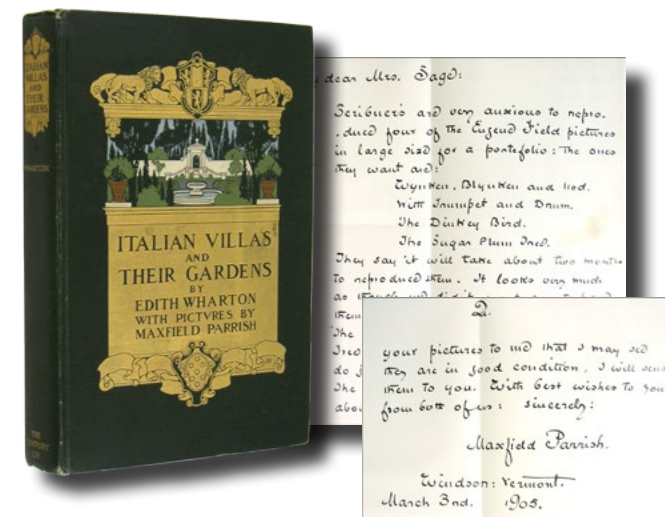 ITALIAN
VILLAS
AND
THEIR
GARDENS
WHARTON
THE
CENTURY
CO
ITALIAN VILLAS
AND
THEIR GARDENS
BY
EDITH WHARTON
WITH PICTVRES BY
MAXFIELD PARRISH
dear Mrs. Sage:
Scribner's are very anxious to repro-
-duce four of the Eugene Field pictures
in large size for a portefolio: The ones
they want are:
Wynken, Blynken and Nod.
With Trumpet and Drum.
The Dinkey Bird.
The Sugar Plum Tree.
They say it will take about two months
to reproduce them. It looks very much
as
them
The
Tree
do
The
abou
2.
your pictures to me that I may see
they are in good condition, I will send
them to you. With best wishes to you
from both of us: sincerely:
Maxfield Parrish.
Windsor: Vermont.
March 3rd. 1905.